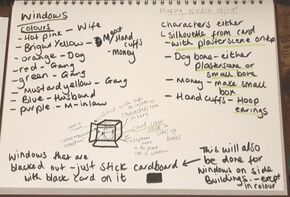 Windows
Colours
- Hot pink - Wife
- Bright Yellow - D
- orange - Dog
- red - Gang
- green - Gang
- Mustard yellow - Gang
- Blue - Husband
- purple - M-in law
Hand
cuffs
- Money
Windows that are
blacked out - just stick cardboard
with black card on it
Making window
Characters either
Silhouette from card
with plasterscene on top
- Dog bone - either
plasterscene or
small bone
- Money - make small
box
- Hand cuffs - Hoop
earings
This will also
be done for
windows on side
Buildings - except
in colour